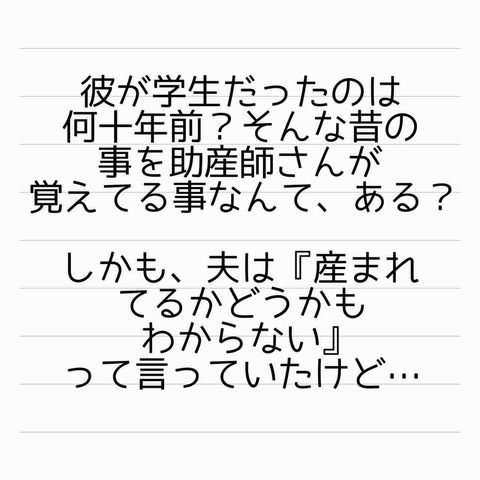 彼が学生だったのは
何十年前？そんな昔の
事を助産師さんが
覚えてる事なんて、ある？
しかも、夫は『産まれ
てるかどうかも
わからない』
って言っていたけど…